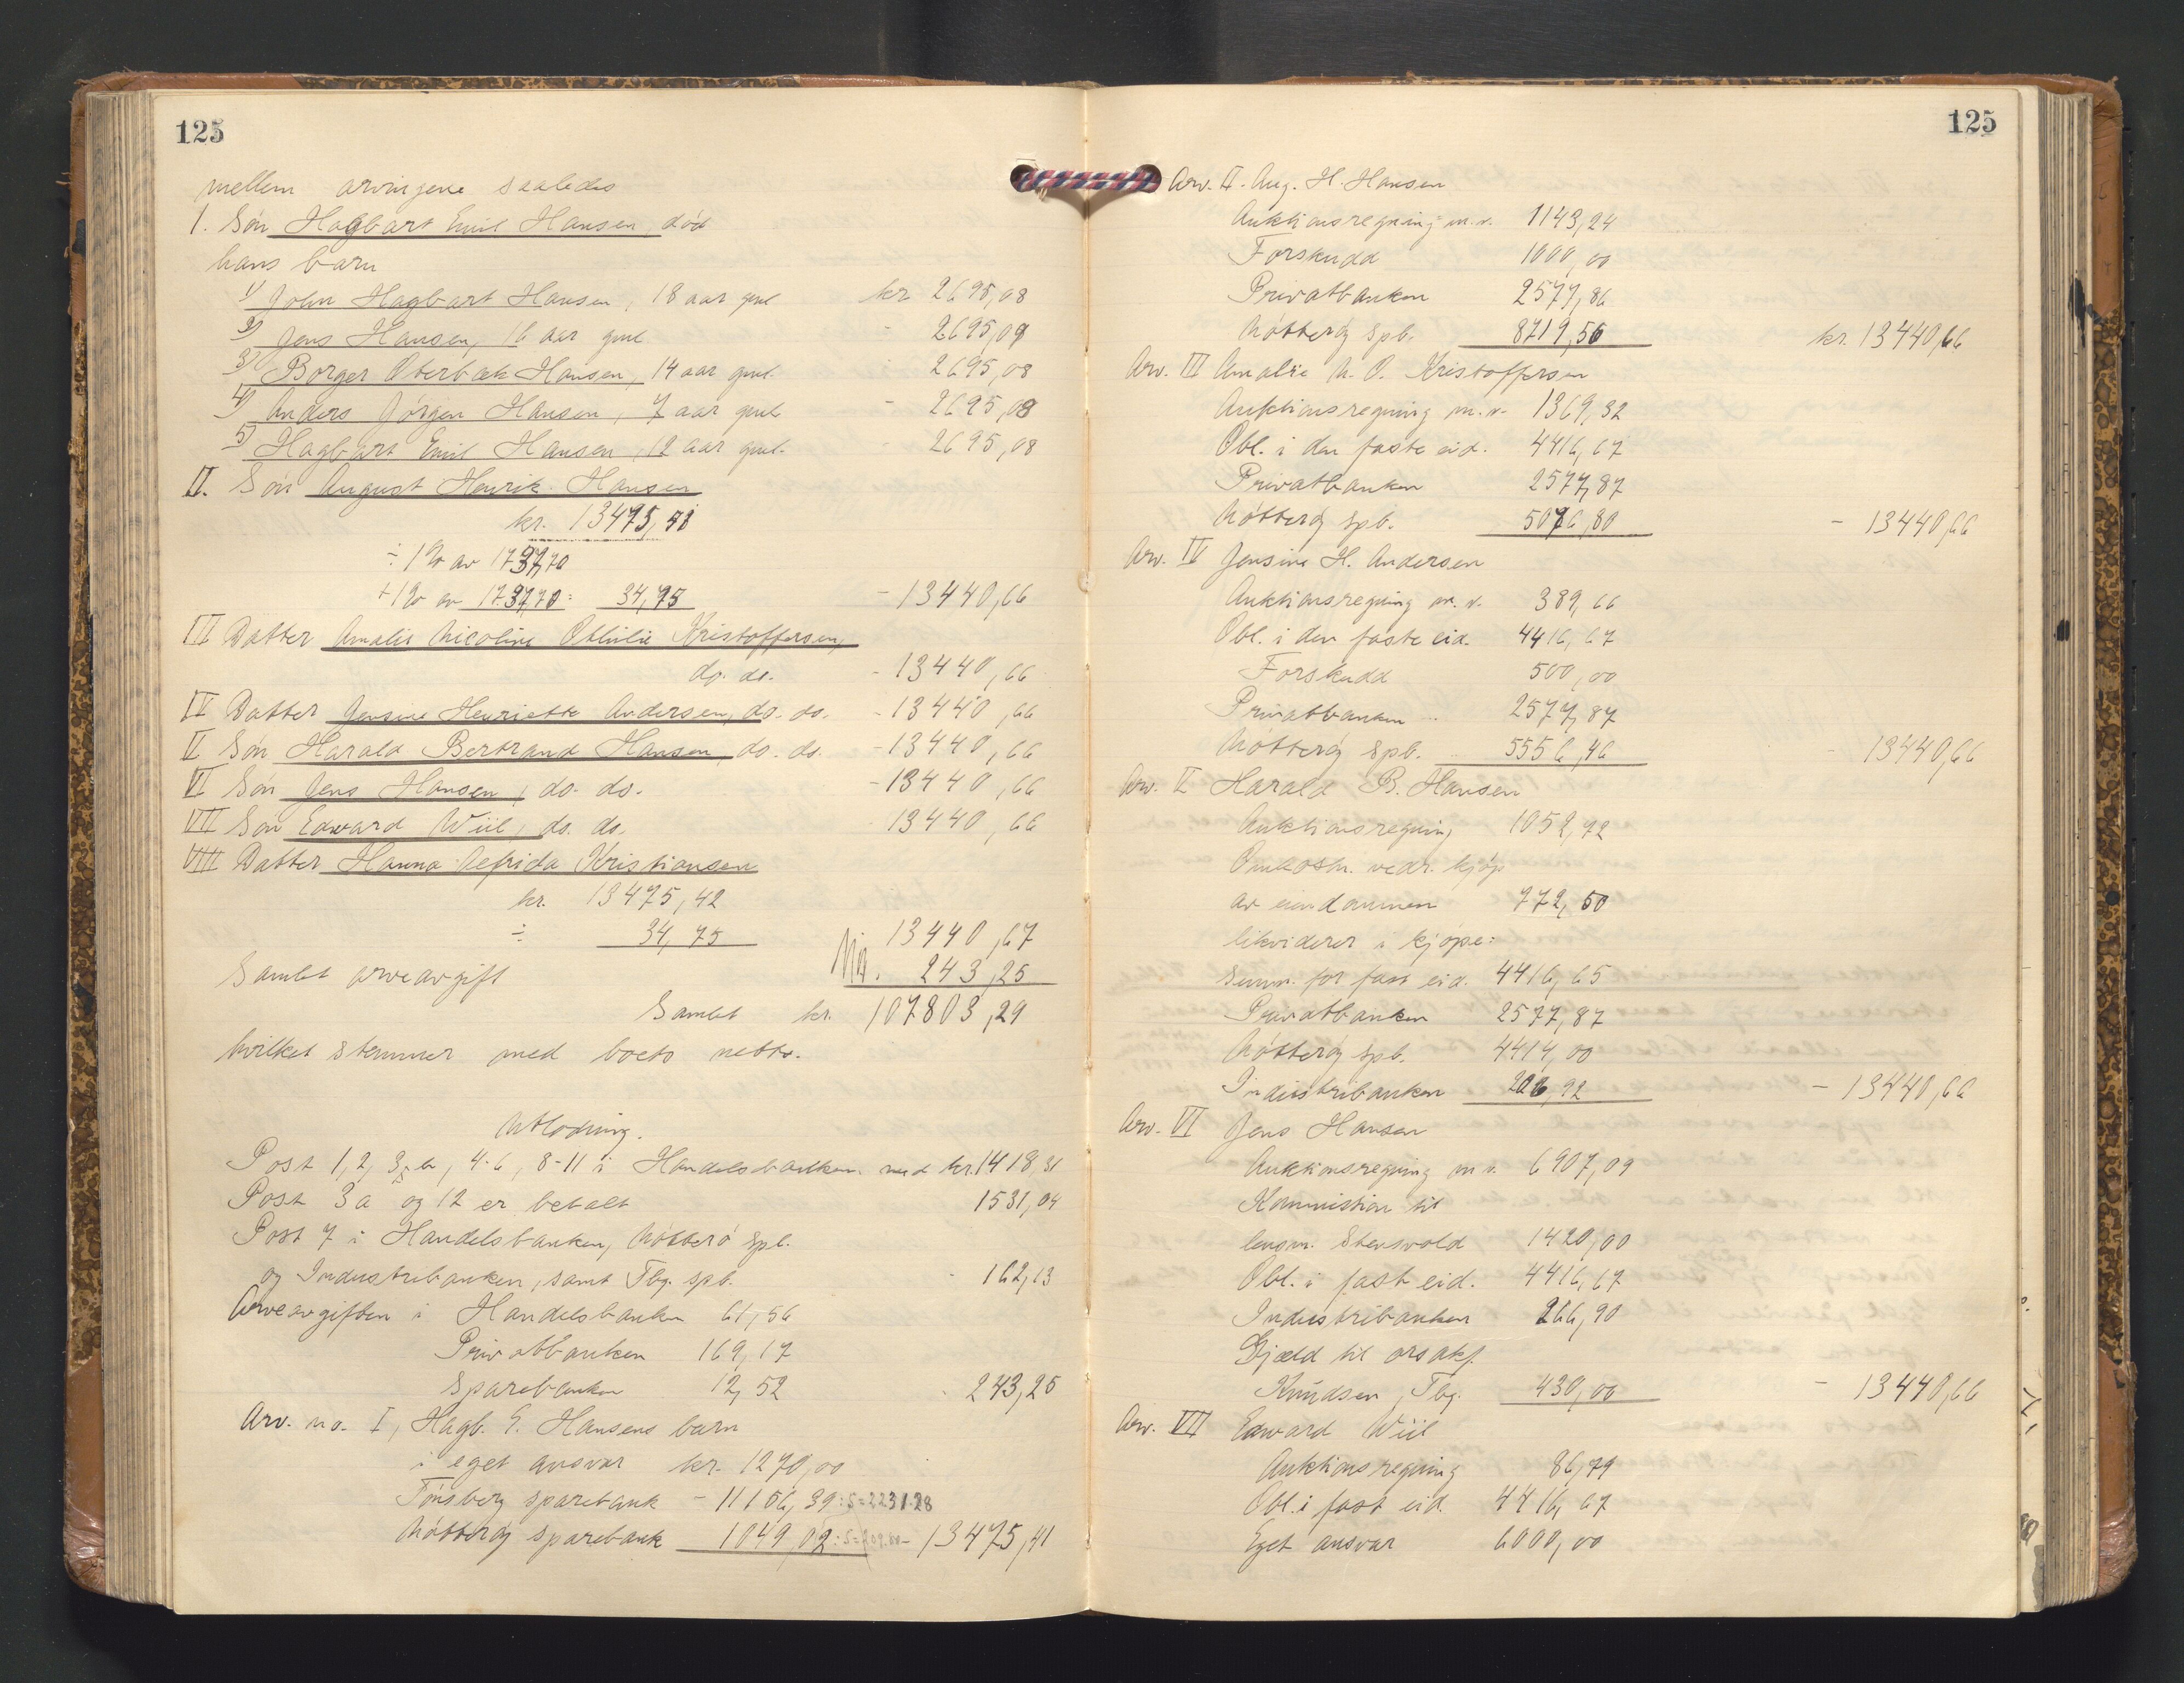 125
mellem arvingene saaledes
1. Søn Hagbart Emil Hansen, død
hans barn
1) John Hagbart Hansen, 18 aar gml kr 2695,08
2) Jens Hansen, 16 aar gml - 2695,09
3) Borger Oterbæk Hansen, 14 aar gml. - 2695,08
4) Anders Jörgen Hansen, 7 aar gml - 2695,08
5) Hagbart Emil Hansen, 12 aar gml. - 2695,08
II. Søn August Henrik Hansen
kr. 13475,41
÷ 1% av 1737,70
+1% av 1737,70: 34,75 - 13440,66
III Datter Amalie Nicoline Othilie Kristoffersen,
do. do. - 13440,66
IV Datter Jensine Henriette Andersen, do. do. - 13440,66
V Søn Harald Bertrand Hansen, do. do. - 13440,66
VI Søn Jens Hansen, do. do. - 13440,66
VII Søn Edward Wiil, do. do. - 13440,66
VIII Datter Hanna Alfrida Kristiansen
kr. 13475,42
÷ 34,75 13440,67
Samlet arveavgift 243,25
Samlet kr. 107803,29
hvilket stemmer med boets netto.
Utlodning.
Post 1, 2, 3 b, 4-6, 8-11 i Handelsbanken med kr. 1418,31
Post 3a og 12 er betalt 1531,04
Post 7 i Handelsbanken, Nötterö spb.
og Industribanken, samt Tbg. spb. - 162,13
Arveavgiften i Handelsbanken 61,56
Privatbanken 169,17
Sparebanken 12,52 - 243,25
Arv. no. I, Hagb. E. Hansens barn
i eget ansvar kr. 1270,00
Tönsberg sparebank - 11156,39 :5=2231.28
Nötteröy sparebank 1049,02 :5=209.80 - 13475,41
125
Arv. II. Aug. H. Hansen
Auktionsregning m.v. 1143,24
Forskudd 1000,00
Privatbanken 2577,86
Nötteröy spb. 8719,56 kr. 13440,66
Arv. III Amalie N. O. Kristoffersen
Auktionsregning m.v. 1369,32
Obl. i den faste eid. 4416,67
Privatbanken 2577,87
Nötteröy spb. 5076,80 - 13440,66
Arv. IV Jensine H. Andersen
Auktionsregning m.v. 389,66
Obl. i den faste eid. 4416,67
Forskudd 500,00
Privatbanken 2577,87
Nötteröy spb. 5556,46 - 13440,66
Arv. V Harald B. Hansen
Auktionsregning 1052,72
Omkostn. vedr. kjøp
av eiendommen 772,50
likviderer i kjøpe:
summ. for fast eid. 4416,65
Privatbanken 2577,87
Nötteröy spb. 4414,00
Industribanken 206,92 - 13440,66
Arv. VI Jens Hansen
Auktionsregning m.v. 6907,09
Kommission til
lensm. Stenswold 1420,00
Obl. i fast eid. 4416,67
Industribanken 266,90
Gjæld til orsakf.
Knudsen, Tbg. 430,00 - 13440,66
Arv. VII Edward Wiil
Auktionsregning 86,79
Obl. i fast eid. 4416,67
Eget ansvar 6000,00